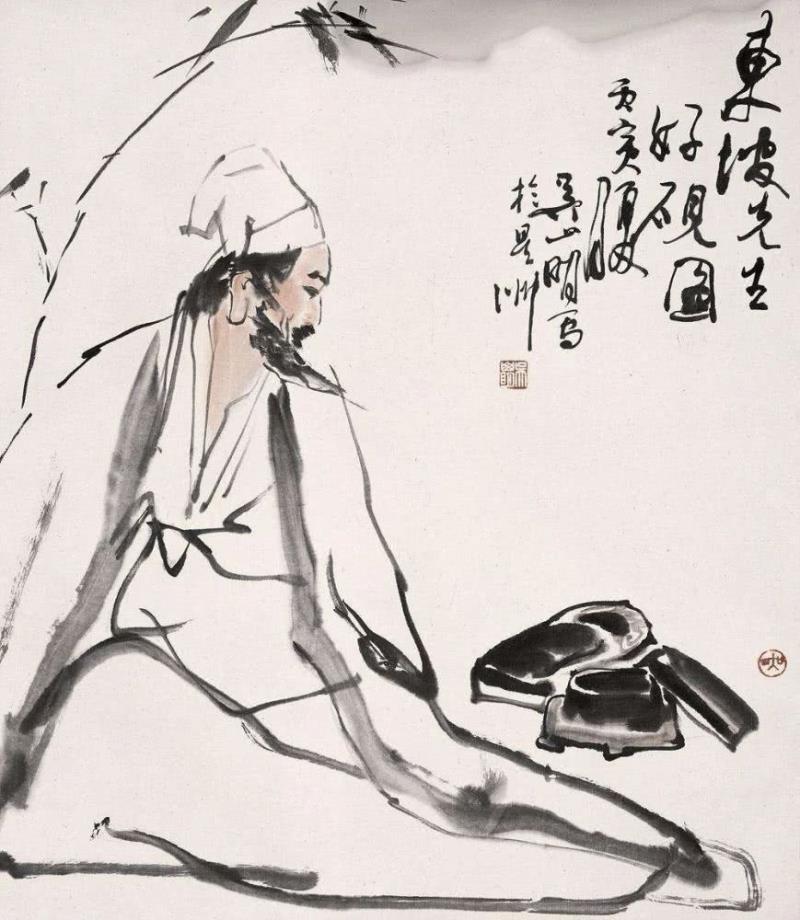 東坡先生
好硯圖
丙寅
吳山明写
於星洲